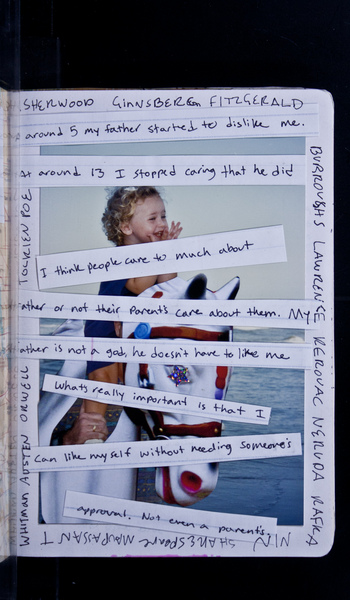 SHERWOOD GINNSBERG FITZGERALD
around 5 my father started to dislike me.
At around 13 I stopped caring that he did
I think people care to much about
father or not their parents care about them. My
father is not a god, he doesn't have to like me
Whats really important is that I
can like myself without needing someone's
approval. Not even a parent's.
BURROUGHS LAWRENSE KEROUAC NERUDA KAFKA
NIN SHAKESPEARE MAUPASSANT
WHITMAN AUSTEN ORWELL TOLKIEN POE